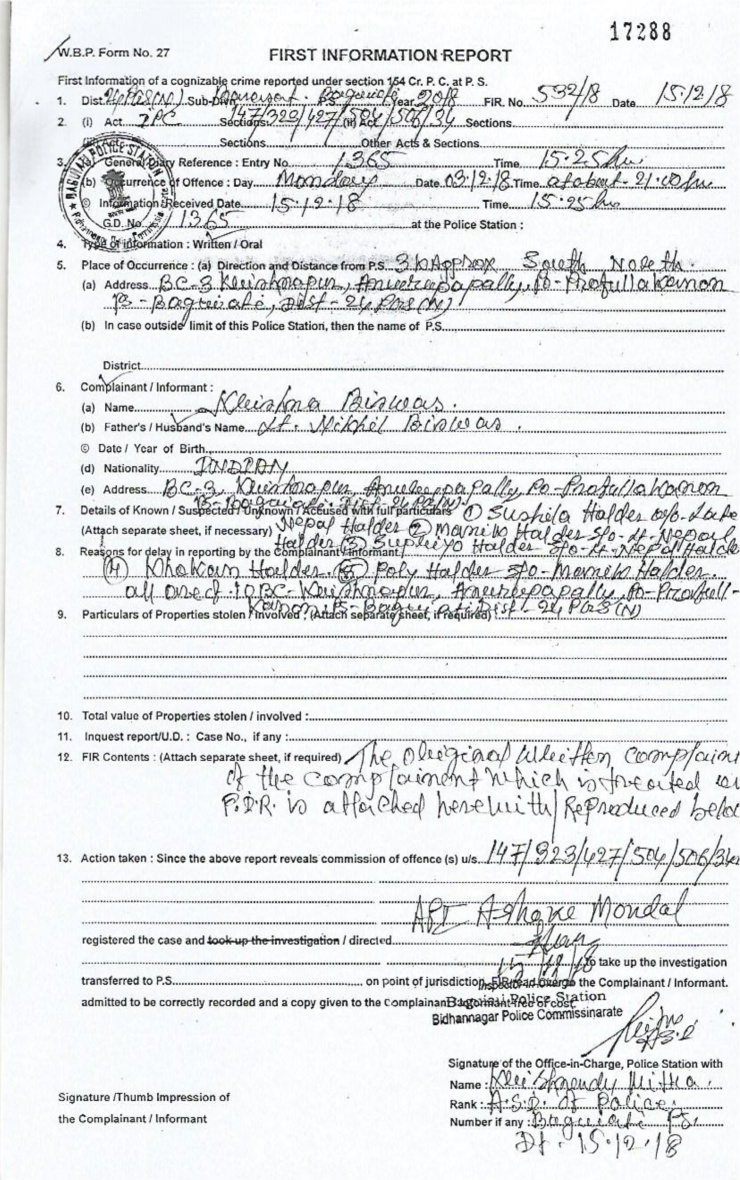 17288
W.B.P. Form No. 27
FIRST INFORMATION REPORT
First Information of a cognizable crime reported under section 154 Cr. P. C. at P. S.
1. Dist. 24 PGS(N) Sub-Divn. P.S. Baguiati Year 2018 FIR. No. 592/18 Date 15.12.18
2. (i) Act. IPC Sections 147/323/427/504/506/34 (ii) Act Sections
Sections Other Acts & Sections
3. General Diary Reference : Entry No. 1365 Time 15.25 hrs
(b) Occurrence of Offence : Day Monday Date 03.12.18 Time at about 21.00 hrs
© Information Received Date 15.12.18 Time 15.25 hrs
G.D. No. 1365 at the Police Station :
BAGUIATI POLICE STATION
4. Type of information : Written / Oral
5. Place of Occurrence : (a) Direction and Distance from P.S. 3 k Approx South North.
(a) Address BC-3 Krishnapur, Anurupapally, Po- Profullakanon
Ps- Baguiati, Dist- 24 PGS (N)
(b) In case outside limit of this Police Station, then the name of P.S.
District
6. Complainant / Informant :
(a) Name Krishna Biswas.
(b) Father's / Husband's Name Lt. Nikhil Biswas.
© Date / Year of Birth
(d) Nationality INDIAN
(e) Address BC-3, Krishnapur, Anurupapally, Po- Profullakanon
PS- Baguiati Dist-24 PGS(N)
7. Details of Known / Suspected / Unknown / Accused with full particulars (1) Sushila Halder w/o- Late
(Attach separate sheet, if necessary) Nepal Halder (2) Manik Halder s/o- Lt- Nepal
Halder (3) Supriyo Halder S/o- Lt- Nepal Halder
8. Reasons for delay in reporting by the Complainant / Informant
(4) Khokan Halder (5) Poly Halder S/o- Manik Halder
all are of 10BC- Krishnapur, Anurupapally, Po- Profull-
Kanon Ps- Baguiati Dist- 24 PGS(N)
9. Particulars of Properties stolen / involved : (Attach separate sheet, if required)
10. Total value of Properties stolen / involved :
11. Inquest report/U.D. : Case No., if any :
12. FIR Contents : (Attach separate sheet, if required) The original written complaint
of the complainent which is treated as
F.I.R. is attached herewith / Reproduced below
13. Action taken : Since the above report reveals commission of offence (s) u/s. 147/323/427/504/506/34
Ashoke Mondal
registered the case and took up the investigation / directed
to take up the investigation
transferred to P.S. on point of jurisdiction, FIR read over to the Complainant / Informant.
admitted to be correctly recorded and a copy given to the Complainant / Informant free of cost.
Baguiati Police Station
Bidhannagar Police Commissinarate
Signature of the Office-in-Charge, Police Station with
Name : Krishnendu Mitra.
Rank : A.S.I. of Police.
Number if any : Baguiati P.S.
Dt. 15.12.18
Signature /Thumb Impression of
the Complainant / Informant